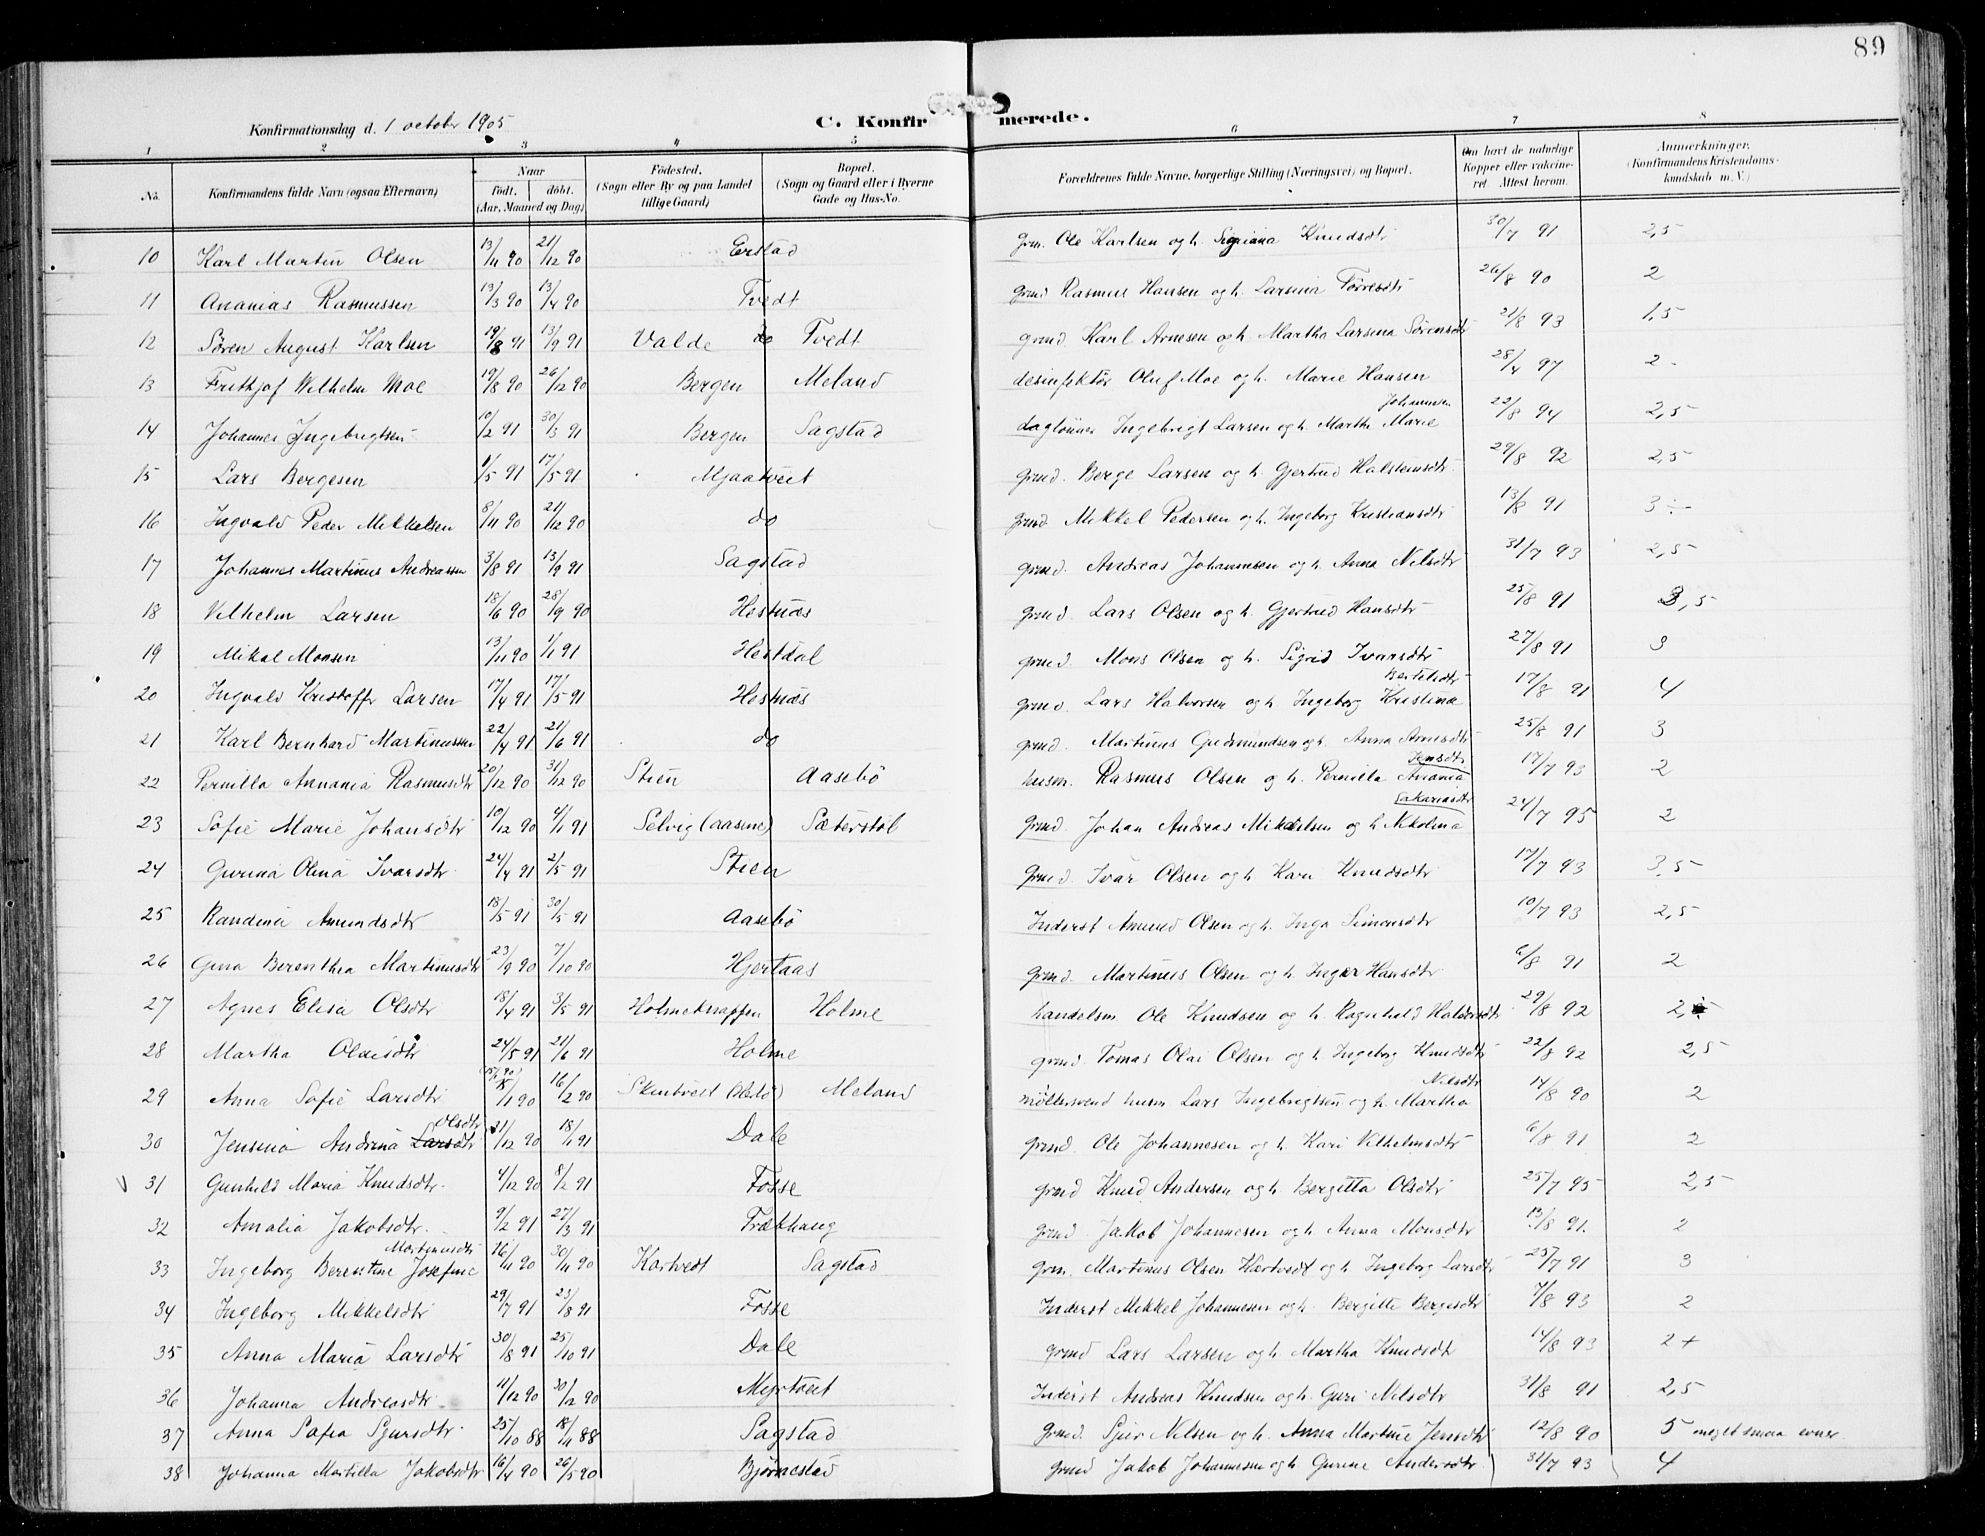 89
Konfirmationsdag d. 1 october 1905
C. Konfirmerede.
1 2 3 4 5 6 7 8
No. Konfirmandens fulde Navn (ogsaa Efternavn) Naar födt. döbt. (Aar, Maaned og Dag) Födested. (Sogn eller By og paa Landet tillige Gaard) Bopæl. (Sogn og Gaard eller i Byerne Gade og Hus-No. Forældrenes fulde Navne, borgerlige Stilling (Næringsvei) og Bopæl. Om havt de naturlige Kopper eller vakcineret Attest herom. Anmærkninger. (Konfirmandens Kristendomskundskab m. V.)
10 Karl Martin Olsen 13/11 90 21/12 90 Erstad grm. Ole Karlsen og h. Knudsdtr 30/7 91 2,5
11 Ananias Rasmussen 13/3 90 13/4 90 Tvedt grmd Rasmus Hansen og h. Larsina Torresdtr 26/8 90 2
12 Sören August Karlsen 19/8 91 13/9 91 Valde do Tvedt grmd Karl Arnesen og h. Martha Larsina Sörensdtr 21/8 93 1,5
13 Frithjof Vilhelm Moe 19/8 90 26/12 90 Bergen Meland desinfektör Oluf Moe og h. Marie Hansen 28/4 97 2
14 Johannes Ingebrigtsen 10/2 91 30/3 91 Bergen Sagstad daglönner Ingebrigt Larsen og h. Marthe Marie Johannsen 22/8 94 2,5
15 Lars Bergesen 1/5 91 17/5 91 Mjaatveit grmd. Berge Larsen og h. Gjertrud Halsteinsdtr 29/8 92 2,5
16 Ingvald Peder Mikkelsen 8/11 90 21/12 90 do grmd. Mikkel Pedersen og h. Ingeborg Kristiansdtr 13/8 91 3÷
17 Johannes Martinus Andreassen 3/8 91 13/9 91 Sagstad grmd. Andreas Johannesen og h. Anna Nilsdtr 31/7 93 2,5
18 Vilhelm Larsen 18/6 90 28/9 90 Hestnæs grmd. Lars Olsen og h. Gjertrud Hansdtr 25/8 91 3,5
19 Mikal Monsen 13/11 90 1/1 91 Hestdal grmd. Mons Olsen og h. Sigrid Ivarsdtr 27/8 91 3
20 Ingvald Kristoffer Larsen 17/4 91 17/5 91 Hestnæs grmd. Lars Halvorsen og h. Ingeborg Kristina Bertelsdtr 17/8 91 4
21 Karl Bernhard Martinussen 22/4 91 21/6 91 do grmd. Martinus Gudmundsen og h. Anna Arnesdtr 25/8 91 3
22 Pernilla Annania Rasmusdtr 20/12 90 31/12 90 Stien Aasebö husm. Rasmus Olsen og h. Pernilla Anania Jensdtr 17/7 93 2
23 Sofie Marie Johansdtr 10/12 90 4/1 91 Selvig (aasene) Sæterstöl grmd. Johan Andreas Mikkelsen og h Nikolina Sakariasdtr 24/7 95 2
24 Gurina Olina Ivarsdtr 24/4 91 2/5 91 Stien grmd. Ivar Olsen og h Kari Knudsdtr 17/7 93 3,5
25 Randina Amundsdtr 18/5 91 30/5 91 Aasebö Inderst Amund Olsen og h. Inga Simonsdtr 10/7 93 2,5
26 Gina Berenthea Martinusdtr 23/9 90 7/10 90 Hjertaas grmd. Martinus Olsen og h Inger Hansdtr 6/8 91 2
27 Agnes Elisa Olsdtr 18/4 91 3/5 91 Holmeknappen Holme handelsm Ole Knudsen og h. Ragnhild Haldorsdtr 29/8 92 2,5
28 Martha Olaisdtr 24/5 91 21/6 91 Holme grmd Tomas Olai Olsen og h Ingeborg Knudsdtr 22/8 92 2,5
29 Anna Sofie Larsdtr 1/1 90 16/2 90 Skintveit Meland möllersvend husm Lars Ingebrigtsen og h. Martha Nilsdtr 14/8 90 2
30 Jensina Andrina Larsdtr Olsdtr 21/12 90 18/1 91 Dale grmd. Ole Johannesen og h. Kari Vilhelmsdtr 6/8 91 2
31 Gunhild Maria Knudsdtr 4/12 90 8/2 91 Fosse grmd Knud Andersen og h. Bergitta Olsdtr 25/7 95 2,5
32 Amalia Jakobsdtr. 9/2 91 27/3 91 Træthaug grmd. Jakob Johannesen og h. Anna Monsdtr 13/8 91. 2
33 Ingeborg Berentine Josefine Martinusdtr 16/11 90 30/11 90 Kartvedt Sagstad grm. Martinus Olsen Kartvedt og h Ingeborg Larsdtr 25/7 91 3
34 Ingeborg Mikkelsdtr 29/7 91 23/8 91 Fosse Inderst Mikkel Johannesen og h. Bergitte Bergesdtr 7/8 93 2
35 Anna Maria Larsdtr 30/8 91 25/10 91 Dale grmd Lars Larsen og h. Martha Knudsdtr 14/8 93 2+
36 Johanna Andreasdtr. 11/12 90 30/12 90 Myrtveit Inderst Andreas Knudsen og h. Guri Nilsdtr 31/8 91 2,5
37 Anna Sofia Sjursdtr 25/10 88 18/11 88 Sagstad grmd. Sjur Nilsen og h. Anna Martine Jensdtr 12/8 90 5 meget smaa evner
38 Johanna Martilla Jakobsdtr 16/4 90 26/5 90 Bjørnestad grmd Jakob Johannesen og h Gurine Andersdtr 31/7 93 4